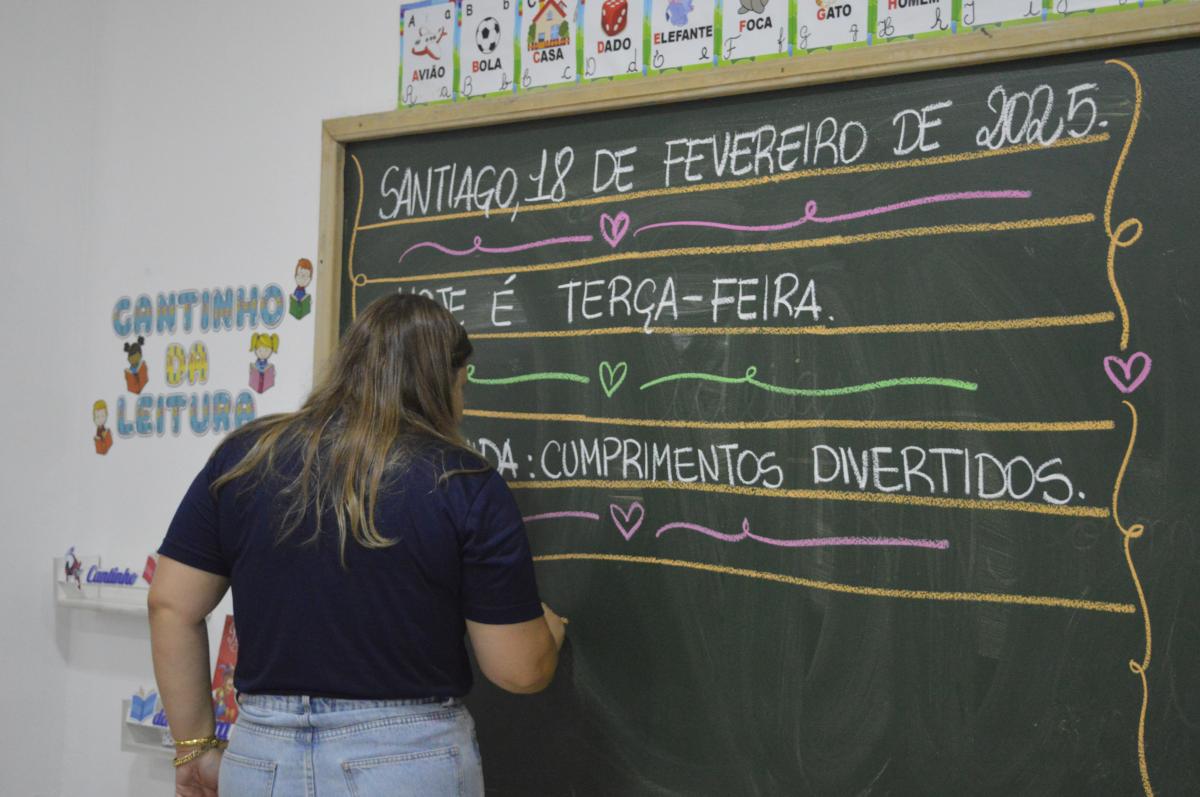 A a B b C
AVIÃO BOLA CASA DADO ELEFANTE FOCA GATO HOMEM
a B b c D d e F f g H h
SANTIAGO, 18 DE FEVEREIRO DE 2025.
É TERÇA-FEIRA.
CUMPRIMENTOS DIVERTIDOS.
CANTINHO
DA
LEITURA
Cantinho
da